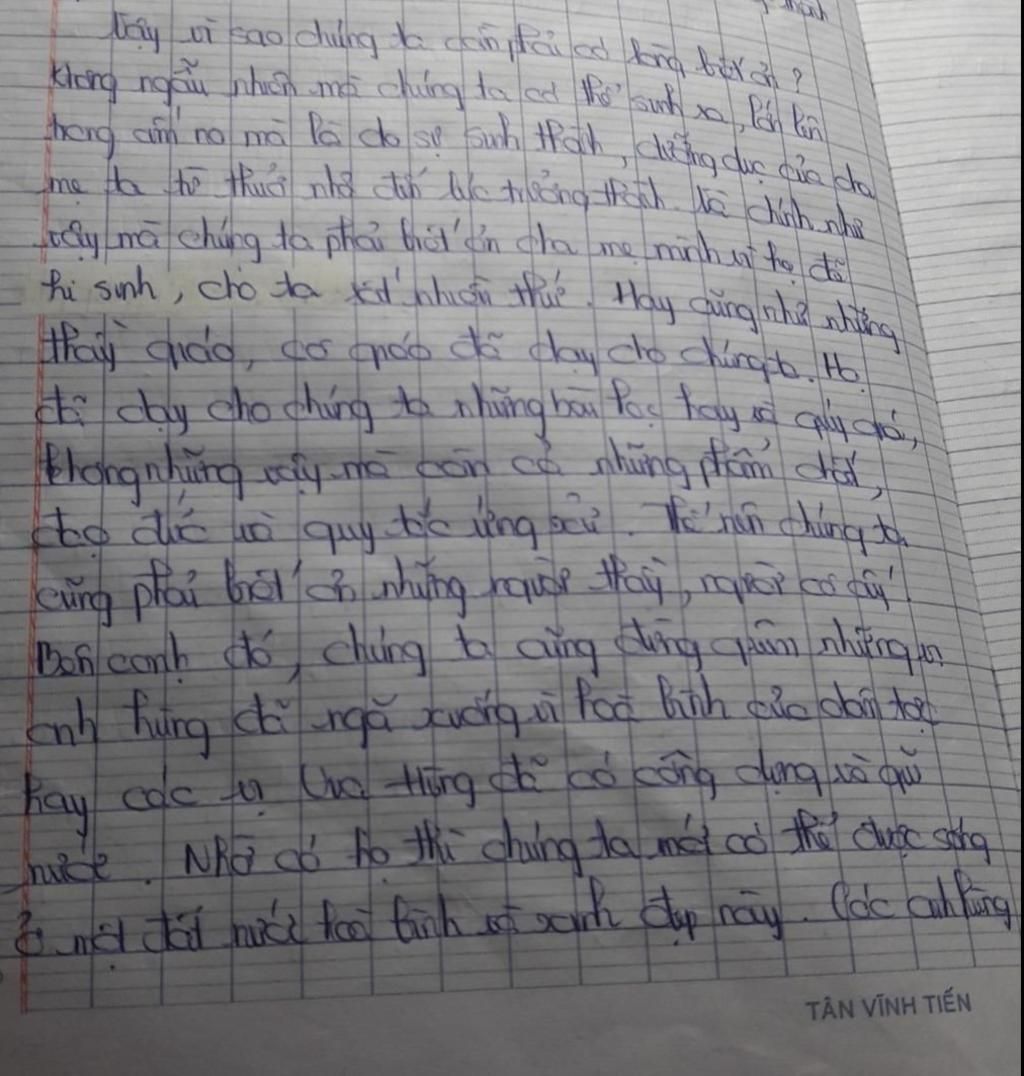 thành
Vậy vì sao chúng ta cần phải có lòng biết ơn?
Không ngẫu nhiên mà chúng ta có thể sinh ra, lớn lên
trong ấm no mà là do sự sinh thành, dưỡng dục của cha
mẹ ta từ thuở nhỏ đến lúc trưởng thành. Và chính như
vậy mà chúng ta phải biết ơn cha mẹ mình vì họ đã
hi sinh, cho ta rất nhiều thứ. Hay cũng như những
thầy giáo, cô giáo đã dạy cho chúng ta. Họ
đã dạy cho chúng ta những bài học hay và quý giá,
không những vậy mà còn cả những phẩm chất,
đạo đức và quy tắc ứng xử. Thế nên chúng ta
cũng phải biết ơn những người thầy, người cô ấy!
Bên cạnh đó, chúng ta cũng đừng quên những vị
anh hùng đã ngã xuống vì hoà bình của dân tộc
hay các vị Vua Hùng đã có công dựng và giữ
nước. Nhờ có họ thì chúng ta mới có thể được sống
ở một đất nước hoà bình và xanh đẹp này. Các anh hùng
TÂN VĨNH TIẾN